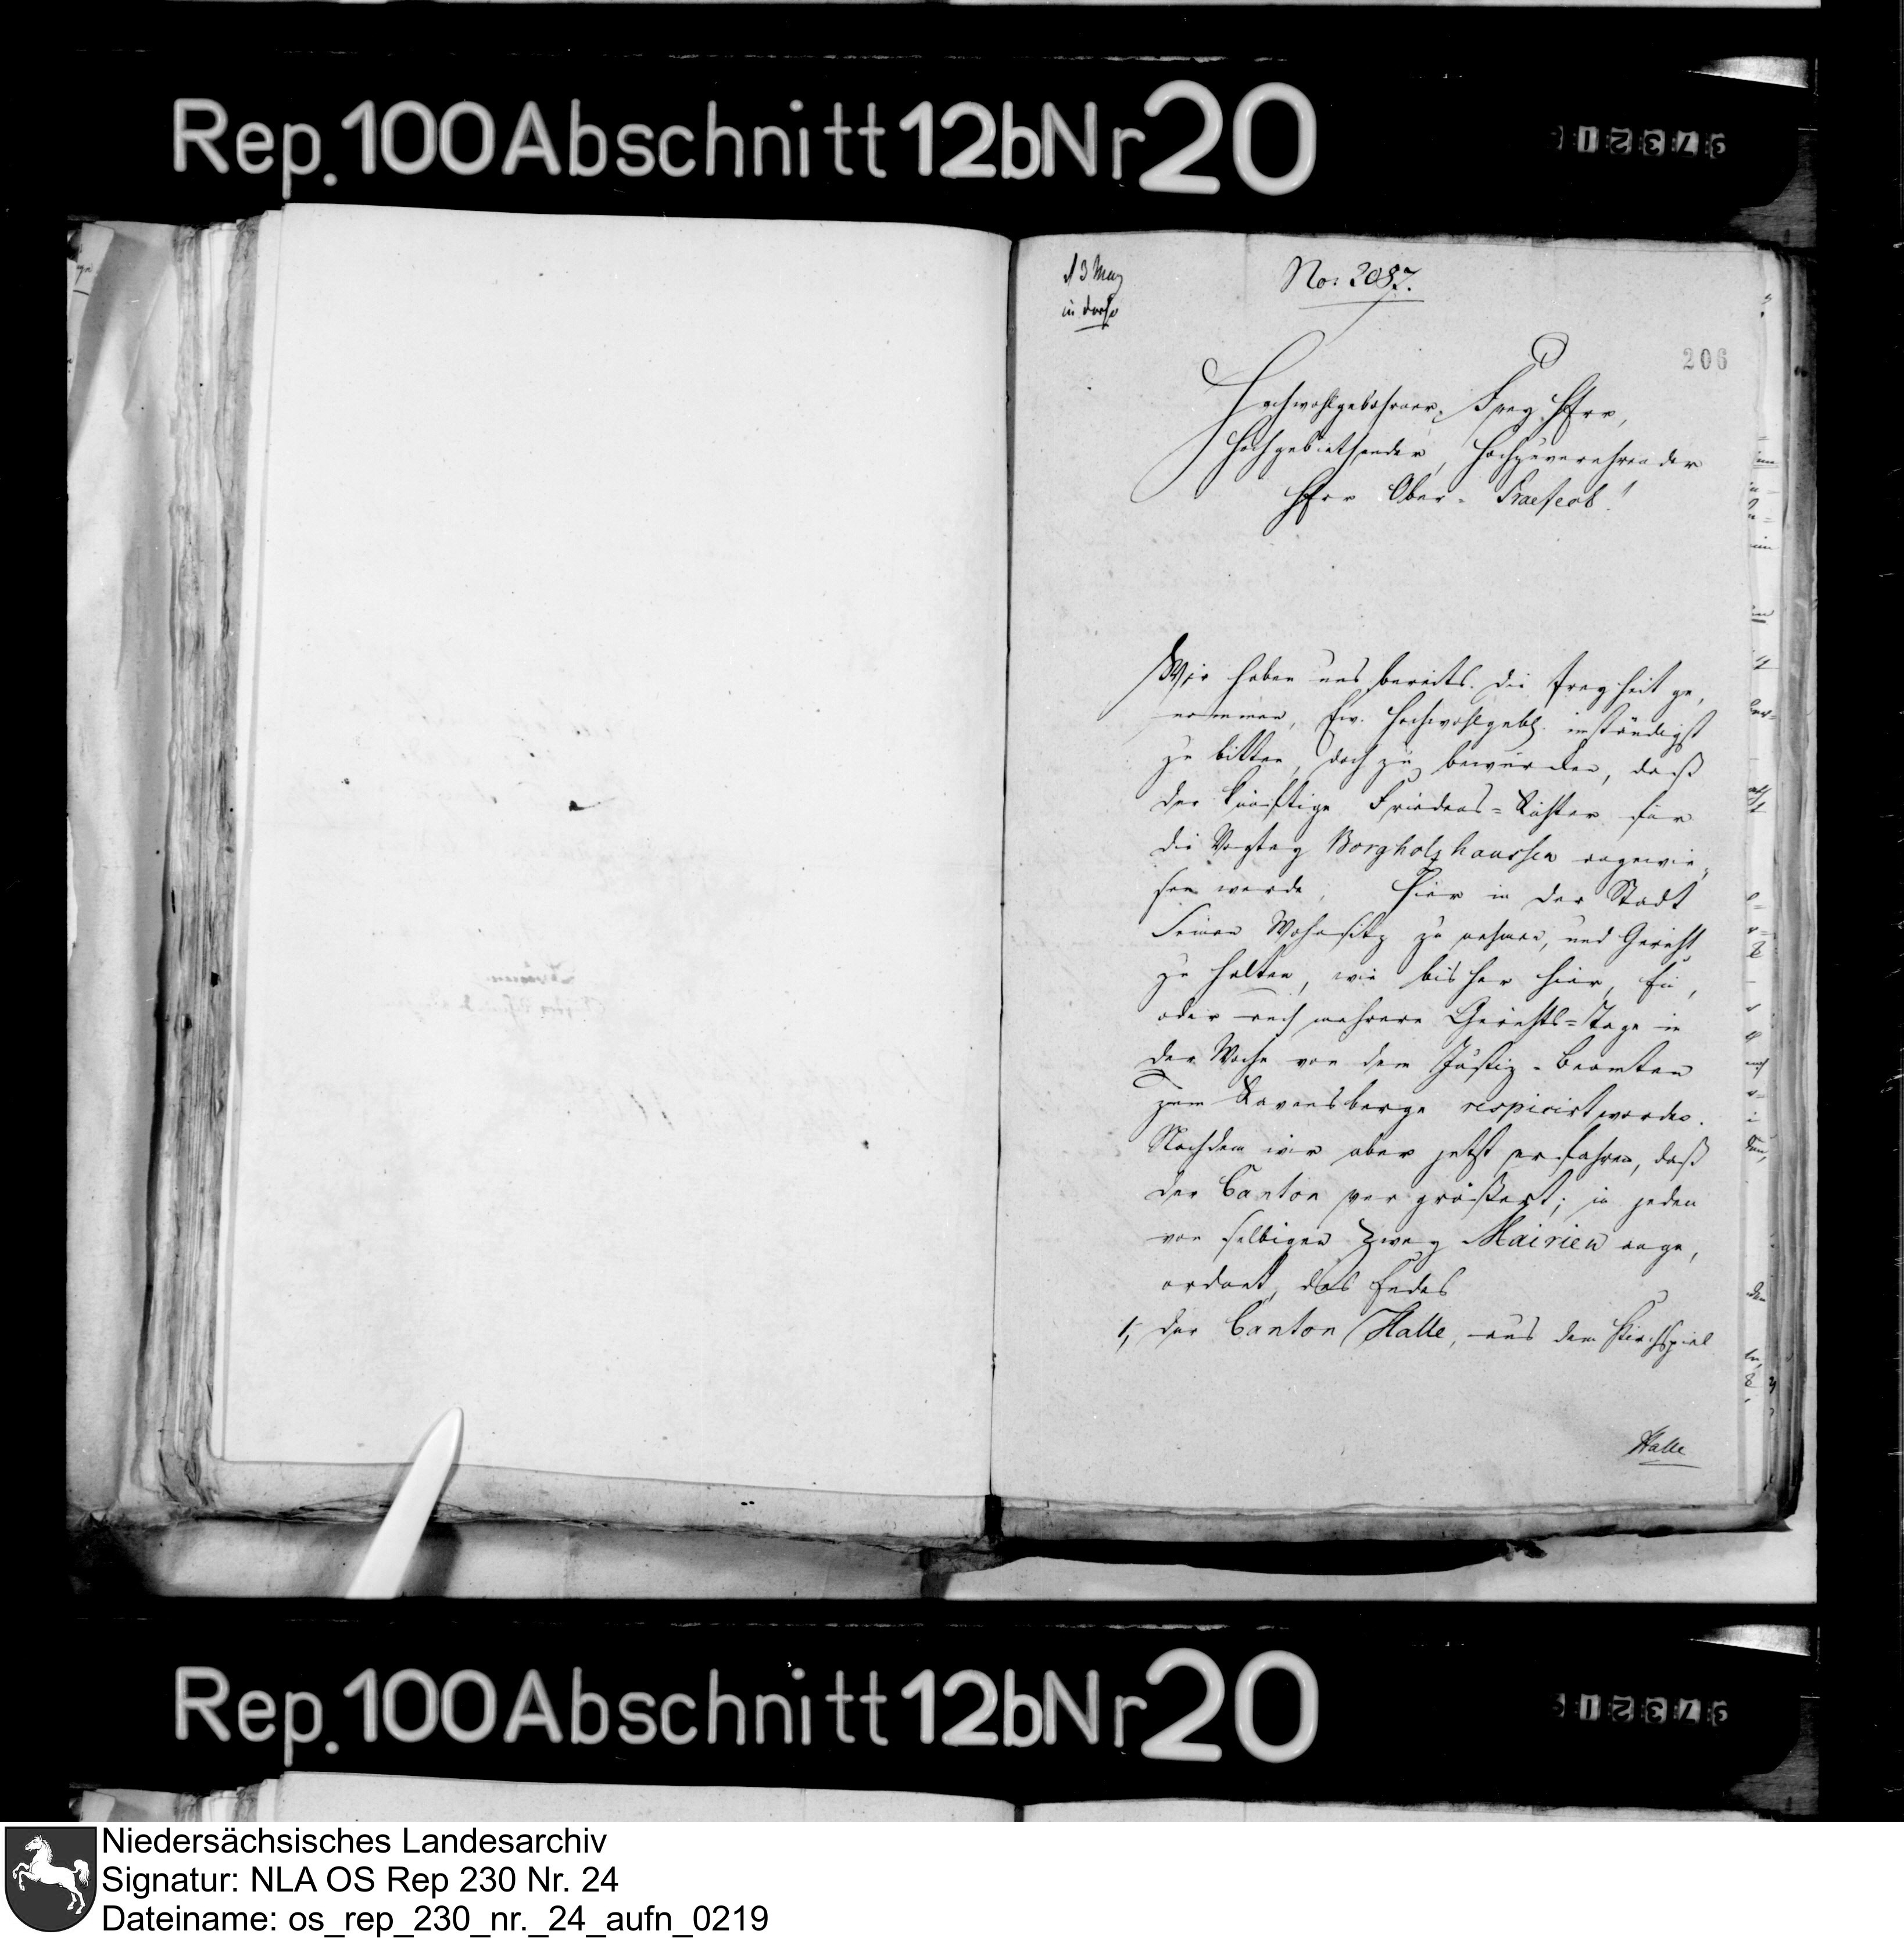 Rep. 100 Abschnitt 12b Nr 20
13 May
No: 2087.
206
Hochwohlgebohrner, Frey Herr,
Hochgebiethender, Hochzuverehrender
Herr Ober-Praefect!
Wir haben uns bereits die Freyheit ge,
nommen, Ew. Hochwohlgeb. inständigst
zu bitten, doch zu bewürken, daß
der künftige Friedens=Richter für
die Vogtey Borgholzhaussen angewie,,
sen werde, hier in der Stadt
Seinen Wohnsitz zu nehmen, und Gericht
zu halten, wie bisher hier, Ein,
oder auch mehrere Gerichts=Tage in
der Woche von dem Justiz-Beamten
zum Ravensberge respicirt worden.
Nachdem wir aber jetzt erfahren, daß
der Canton vergrößert; in jeden
von selbigen Zwey Mairien ange,
ordnet, des Endes
1, der Canton Halle, aus dem Kirchspiel
Halle
Rep. 100 Abschnitt 12b Nr 20
Niedersächsisches Landesarchiv
Signatur: NLA OS Rep 230 Nr. 24
Dateiname: os_rep_230_nr._24_aufn_0219